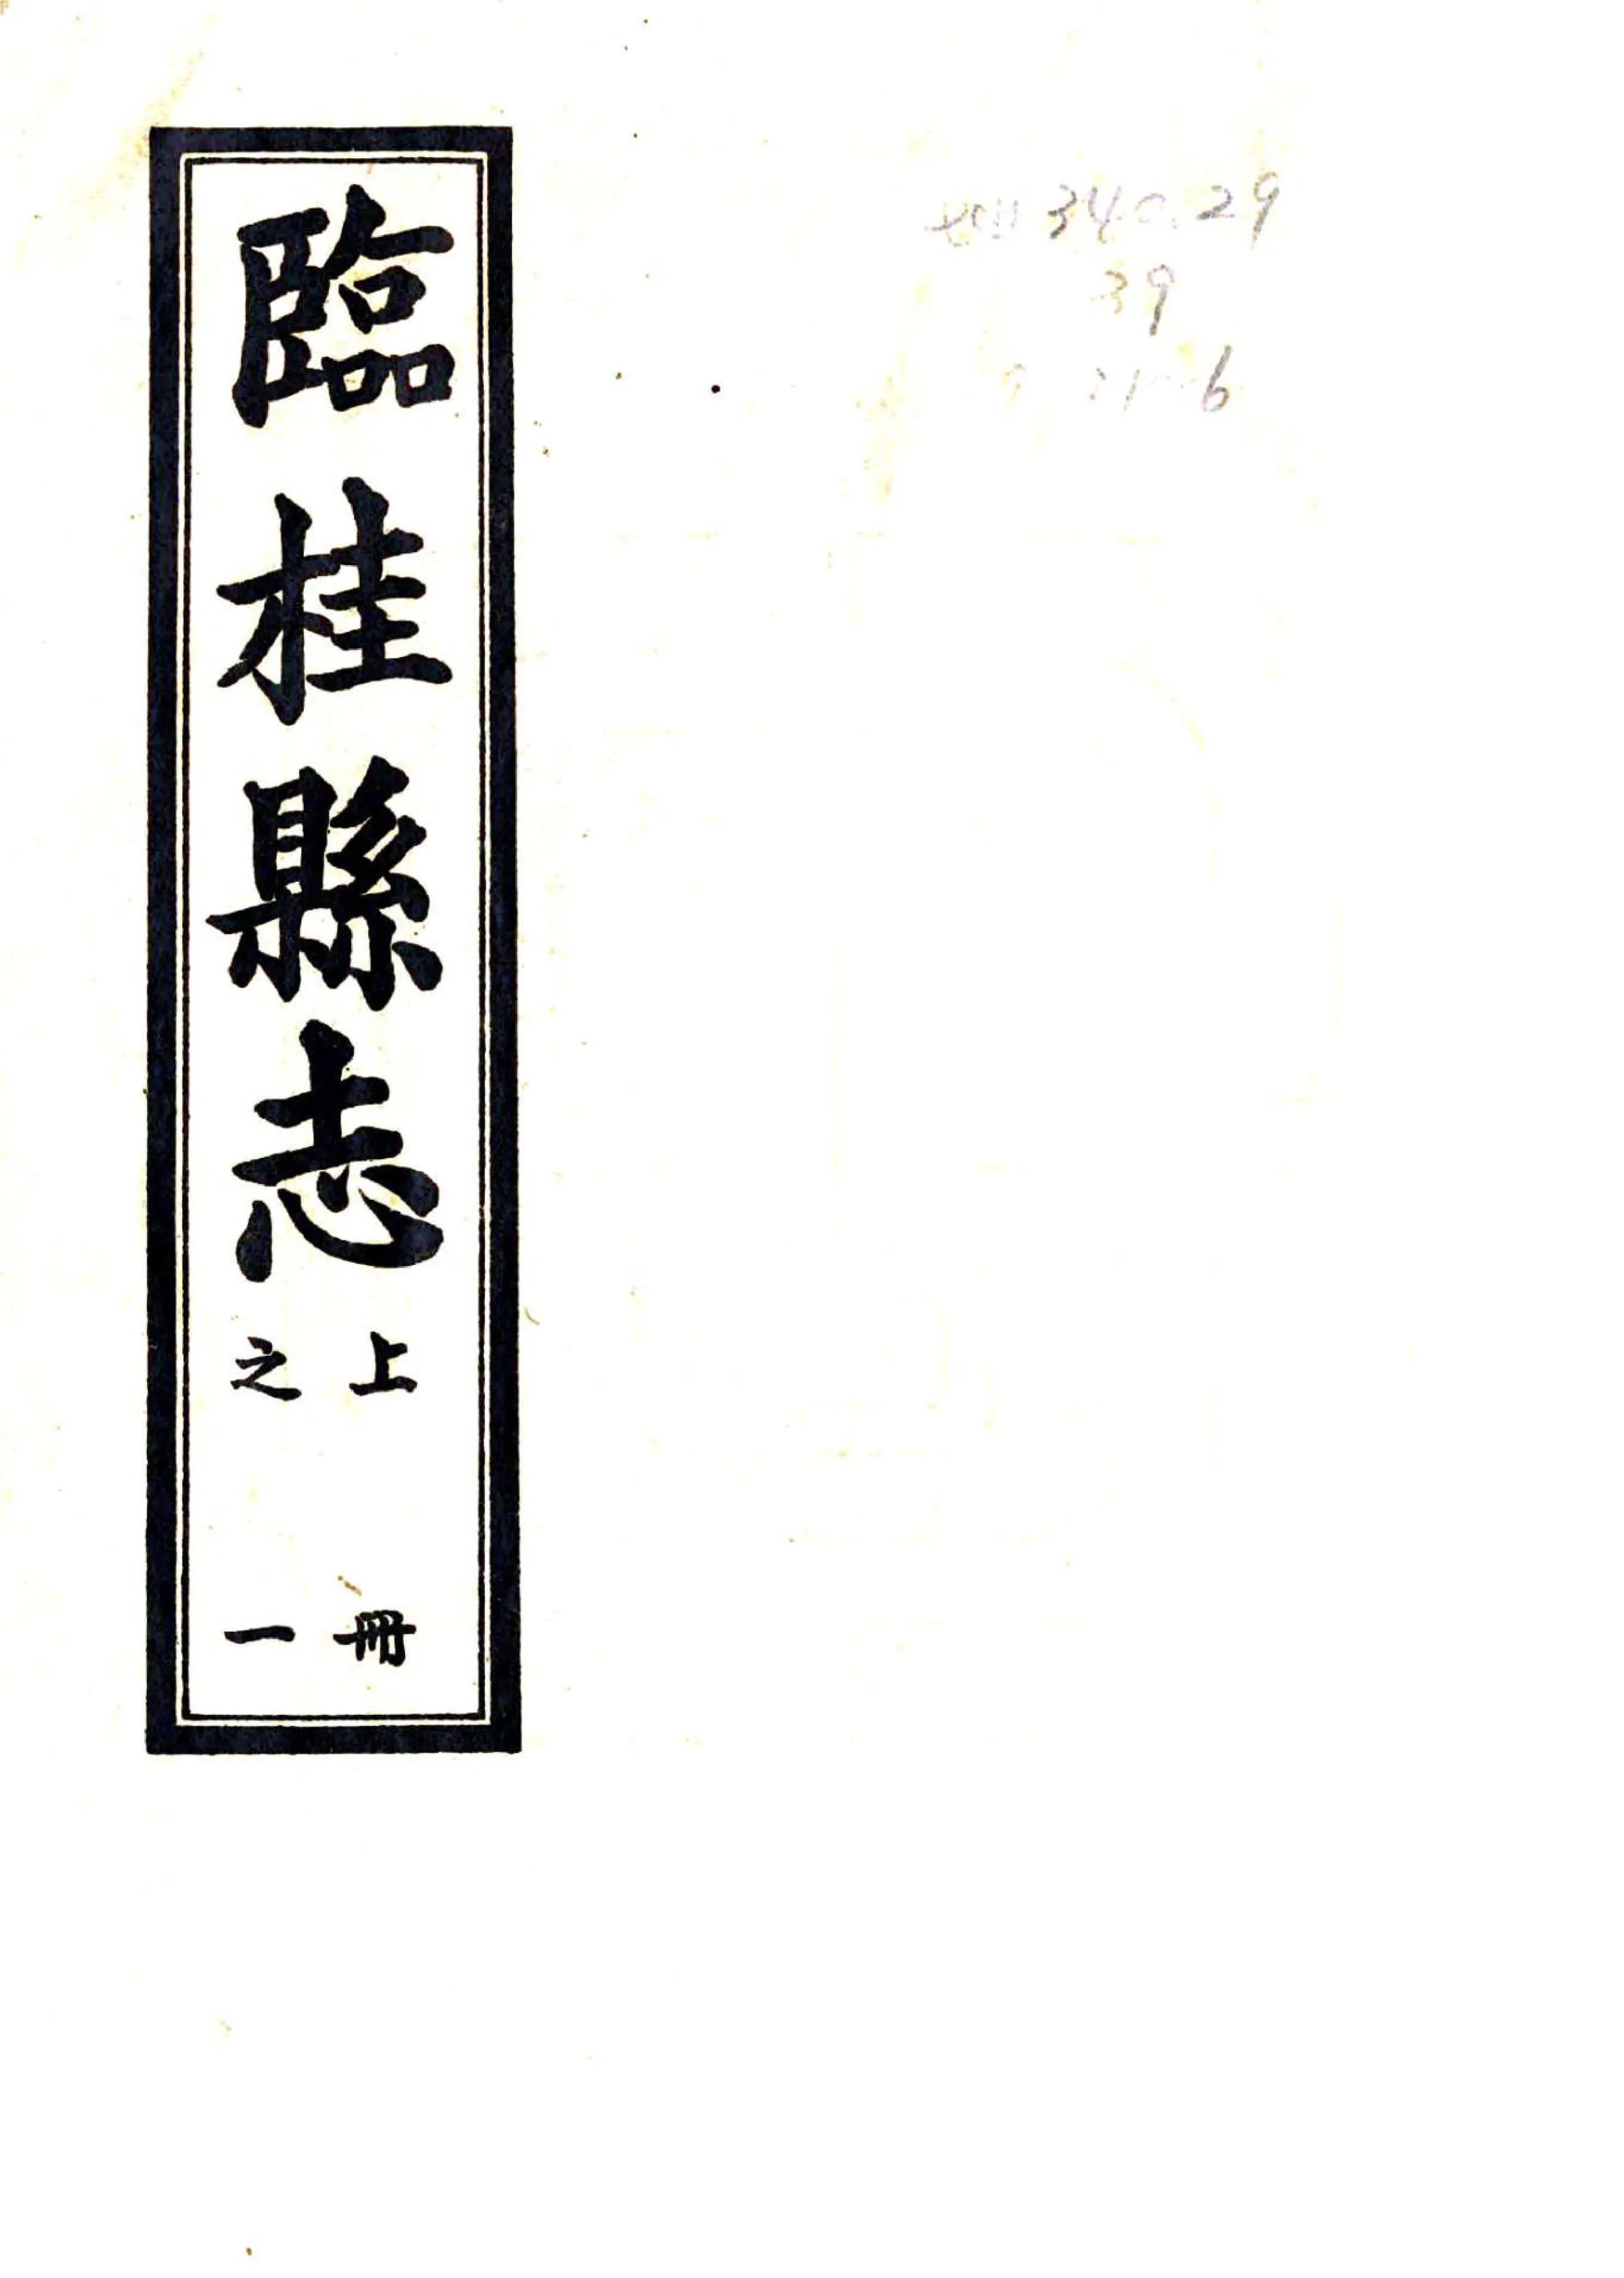 臨桂縣志
上冊
之一
340.29
39